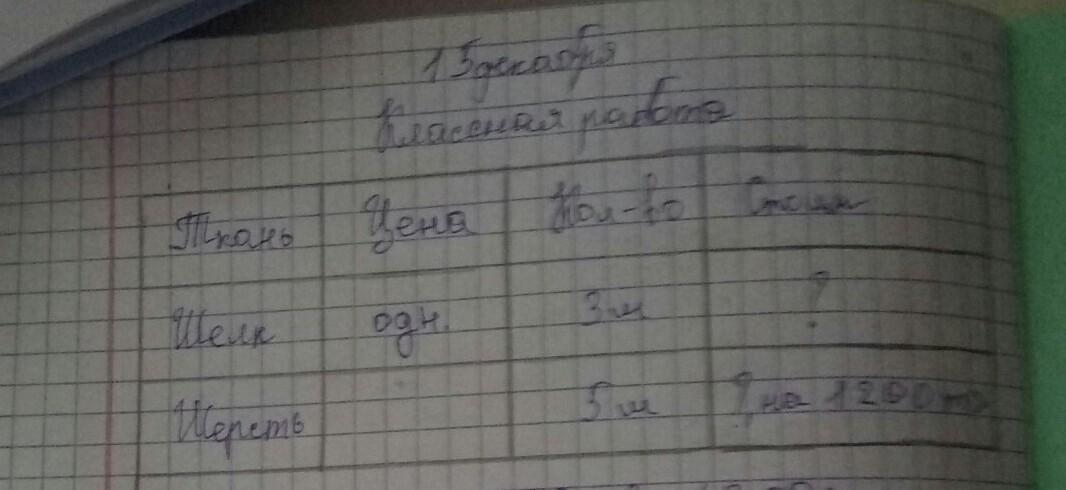 15 декабря
Классная работа
Ткань Цена Кол-во Стоим
Шелк одн. 3 м ?
Шерсть 5 м ? на 1200 тг